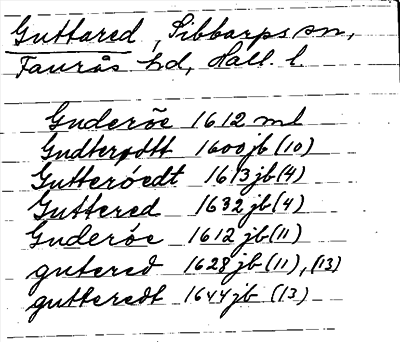 Guttared, Sibbarps sn,
Faurås hd, Hall. l.
Guderöe 1612 ml
Gudterødtt 1600 jb (10)
Gutteróedt 1613 jb (4)
Guttered 1632 jb (4)
Guderóe 1612 jb (11)
gutered 1628 jb (11), (13)
gutteredt 1644 jb (13)